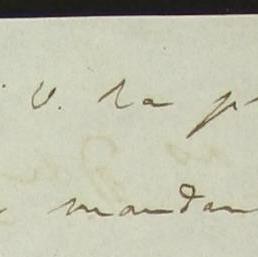 V. ha p
mandan